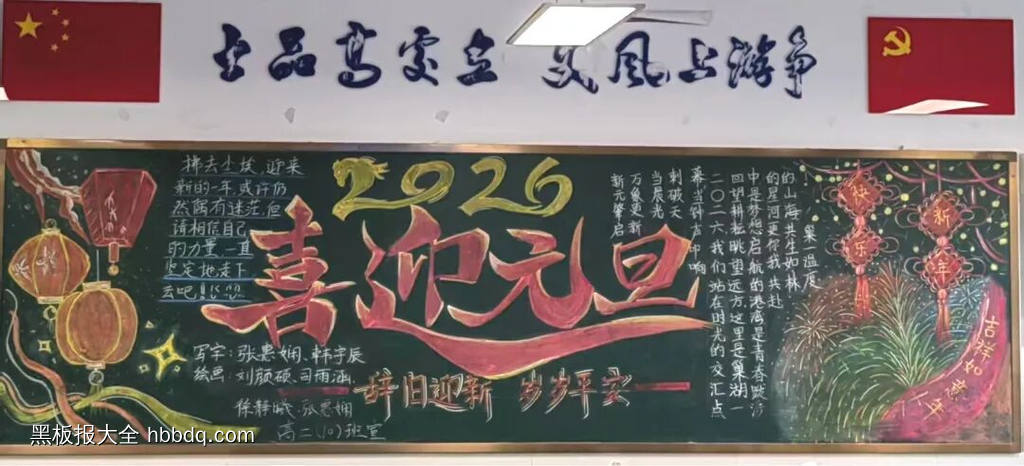 士品高处立 文风上游争
2026
喜迎元旦
辞旧迎新 岁岁平安
拂去尘埃,迎来
新的一年,或许仍
然偶有迷茫,但
请相信自己
的力量,一直
坚定地走下
去吧!
写字:张惠娴、韩宇辰
绘画:刘颜硕、司雨涵、
徐静曦、张惠娴
高二(10)班宣
新元肇启
万象更新
当晨光
刺破天
幕当钟声响
二〇二六我们站在时光的交汇点
回望耕耘眺望远方这里是巢湖一
中是梦想启航的港湾是青春跋涉
的星河更你我共赴
的山海共生如林
集一温度
快乐
新年
吉祥如意
黑板报大全 hbbdq.com